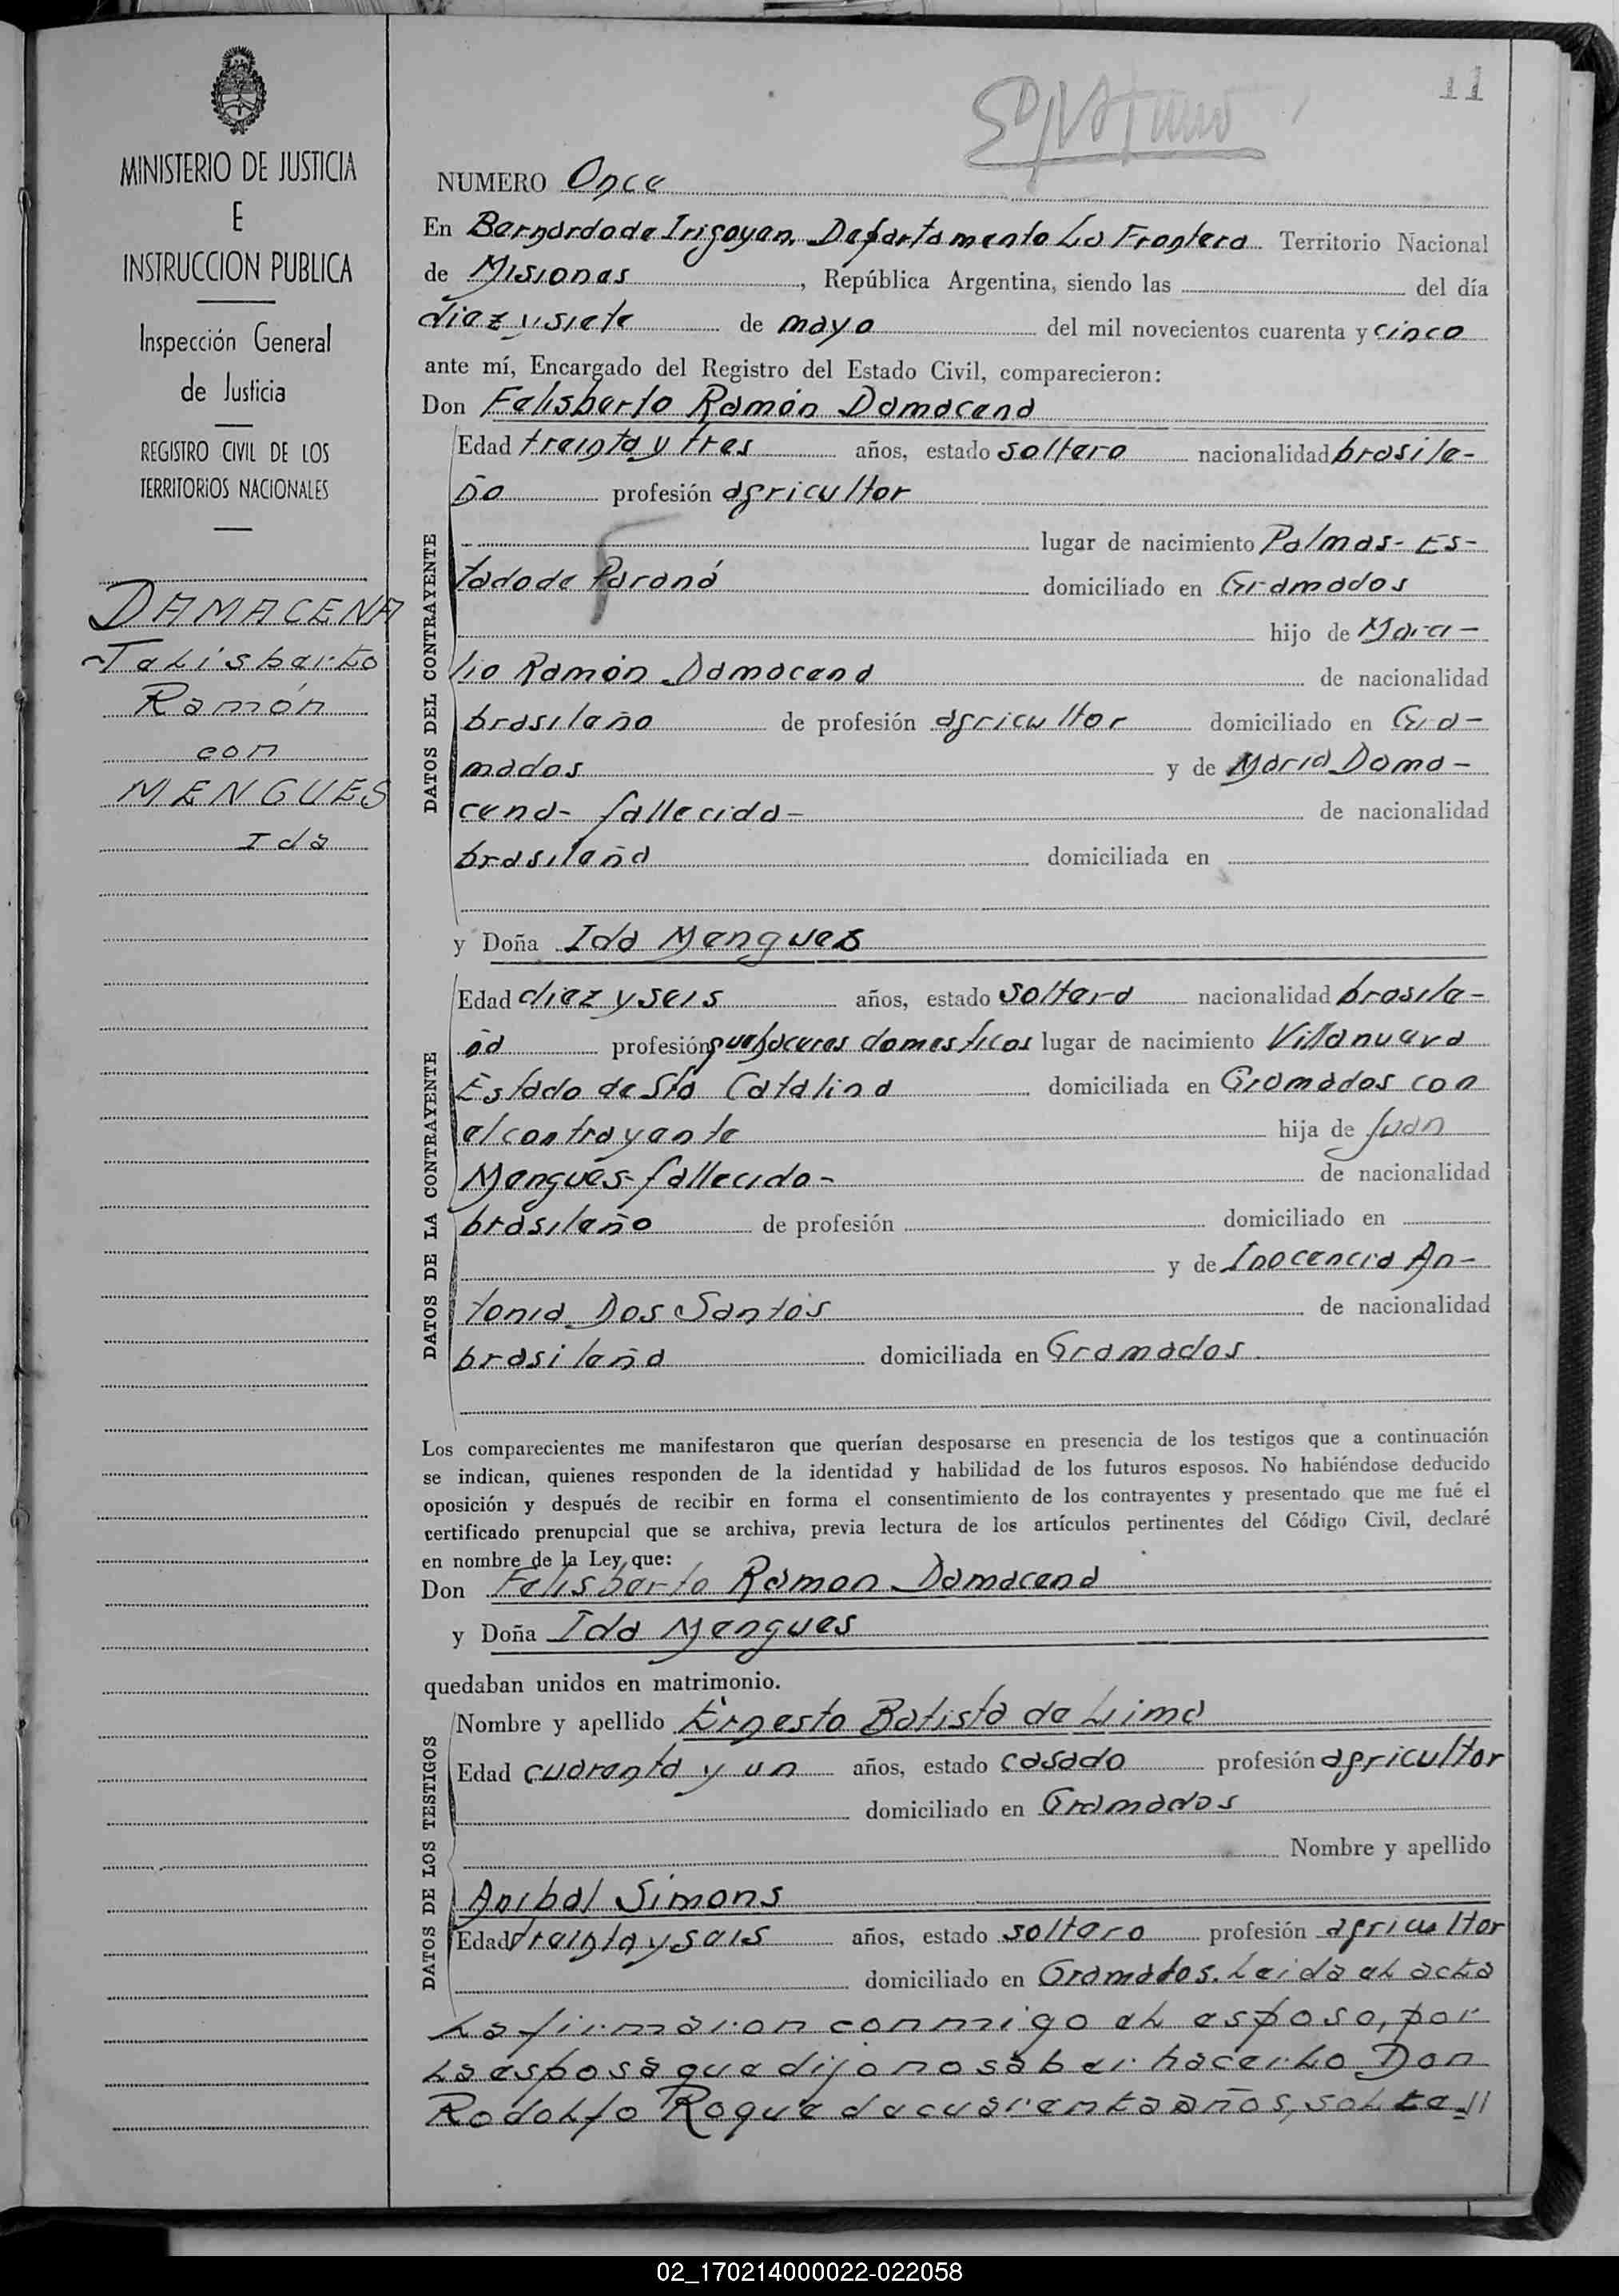 11
MINISTERIO DE JUSTICIA
E
INSTRUCCION PUBLICA
Inspección General
de Justicia
REGISTRO CIVIL DE LOS
TERRITORIOS NACIONALES
DAMACENA
Felisberto
Ramón
con
MENGUES
Ida
NUMERO Once
En Bernardo de Irigoyen, Departamento La Frontera Territorio Nacional
de Misiones, República Argentina, siendo las del día
diez y siete de mayo del mil novecientos cuarenta y cinco
ante mí, Encargado del Registro del Estado Civil, comparecieron:
Don Felisberto Ramón Damacena
DATOS DEL CONTRAYENTE
Edad treinta y tres años, estado soltero nacionalidad brasile-
ño profesión agricultor
lugar de nacimiento Palmas- Es-
tado de Paraná domiciliado en Gramados
hijo de Mau-
lio Ramón Damacena de nacionalidad
brasileño de profesión agricultor domiciliado en Gra-
mados y de Maria Dama-
cena- fallecida- de nacionalidad
brasileña domiciliada en
y Doña Ida Mengues
DATOS DE LA CONTRAYENTE
Edad diez y seis años, estado soltera nacionalidad brasile-
ña profesión quehaceres domesticos lugar de nacimiento Villanueva
Estado de Sta Catalina domiciliada en Gramados con
el contrayente hija de Juan
Mengues- fallecido- de nacionalidad
brasileño de profesión domiciliado en
y de Inocencia An-
tonia Dos Santos de nacionalidad
brasileña domiciliada en Gramados.
Los comparecientes me manifestaron que querían desposarse en presencia de los testigos que a continuación
se indican, quienes responden de la identidad y habilidad de los futuros esposos. No habiéndose deducido
oposición y después de recibir en forma el consentimiento de los contrayentes y presentado que me fué el
certificado prenupcial que se archiva, previa lectura de los artículos pertinentes del Código Civil, declaré
en nombre de la Ley, que:
Don Felisberto Ramon Damacena
y Doña Ida Mengues
quedaban unidos en matrimonio.
DATOS DE LOS TESTIGOS
Nombre y apellido Ernesto Batista de Lima
Edad cuarenta y un años, estado casado profesión agricultor
domiciliado en Gramados
Nombre y apellido
Anibal Simons
Edad treinta y seis años, estado soltero profesión agricultor
domiciliado en Gramados. Leida el acta
La firmaron conmigo el esposo, por
La esposa que dijo no saber hacerlo Don
Rodolfo Roque de cuarenta años, solte-//
02_170214000022-022058